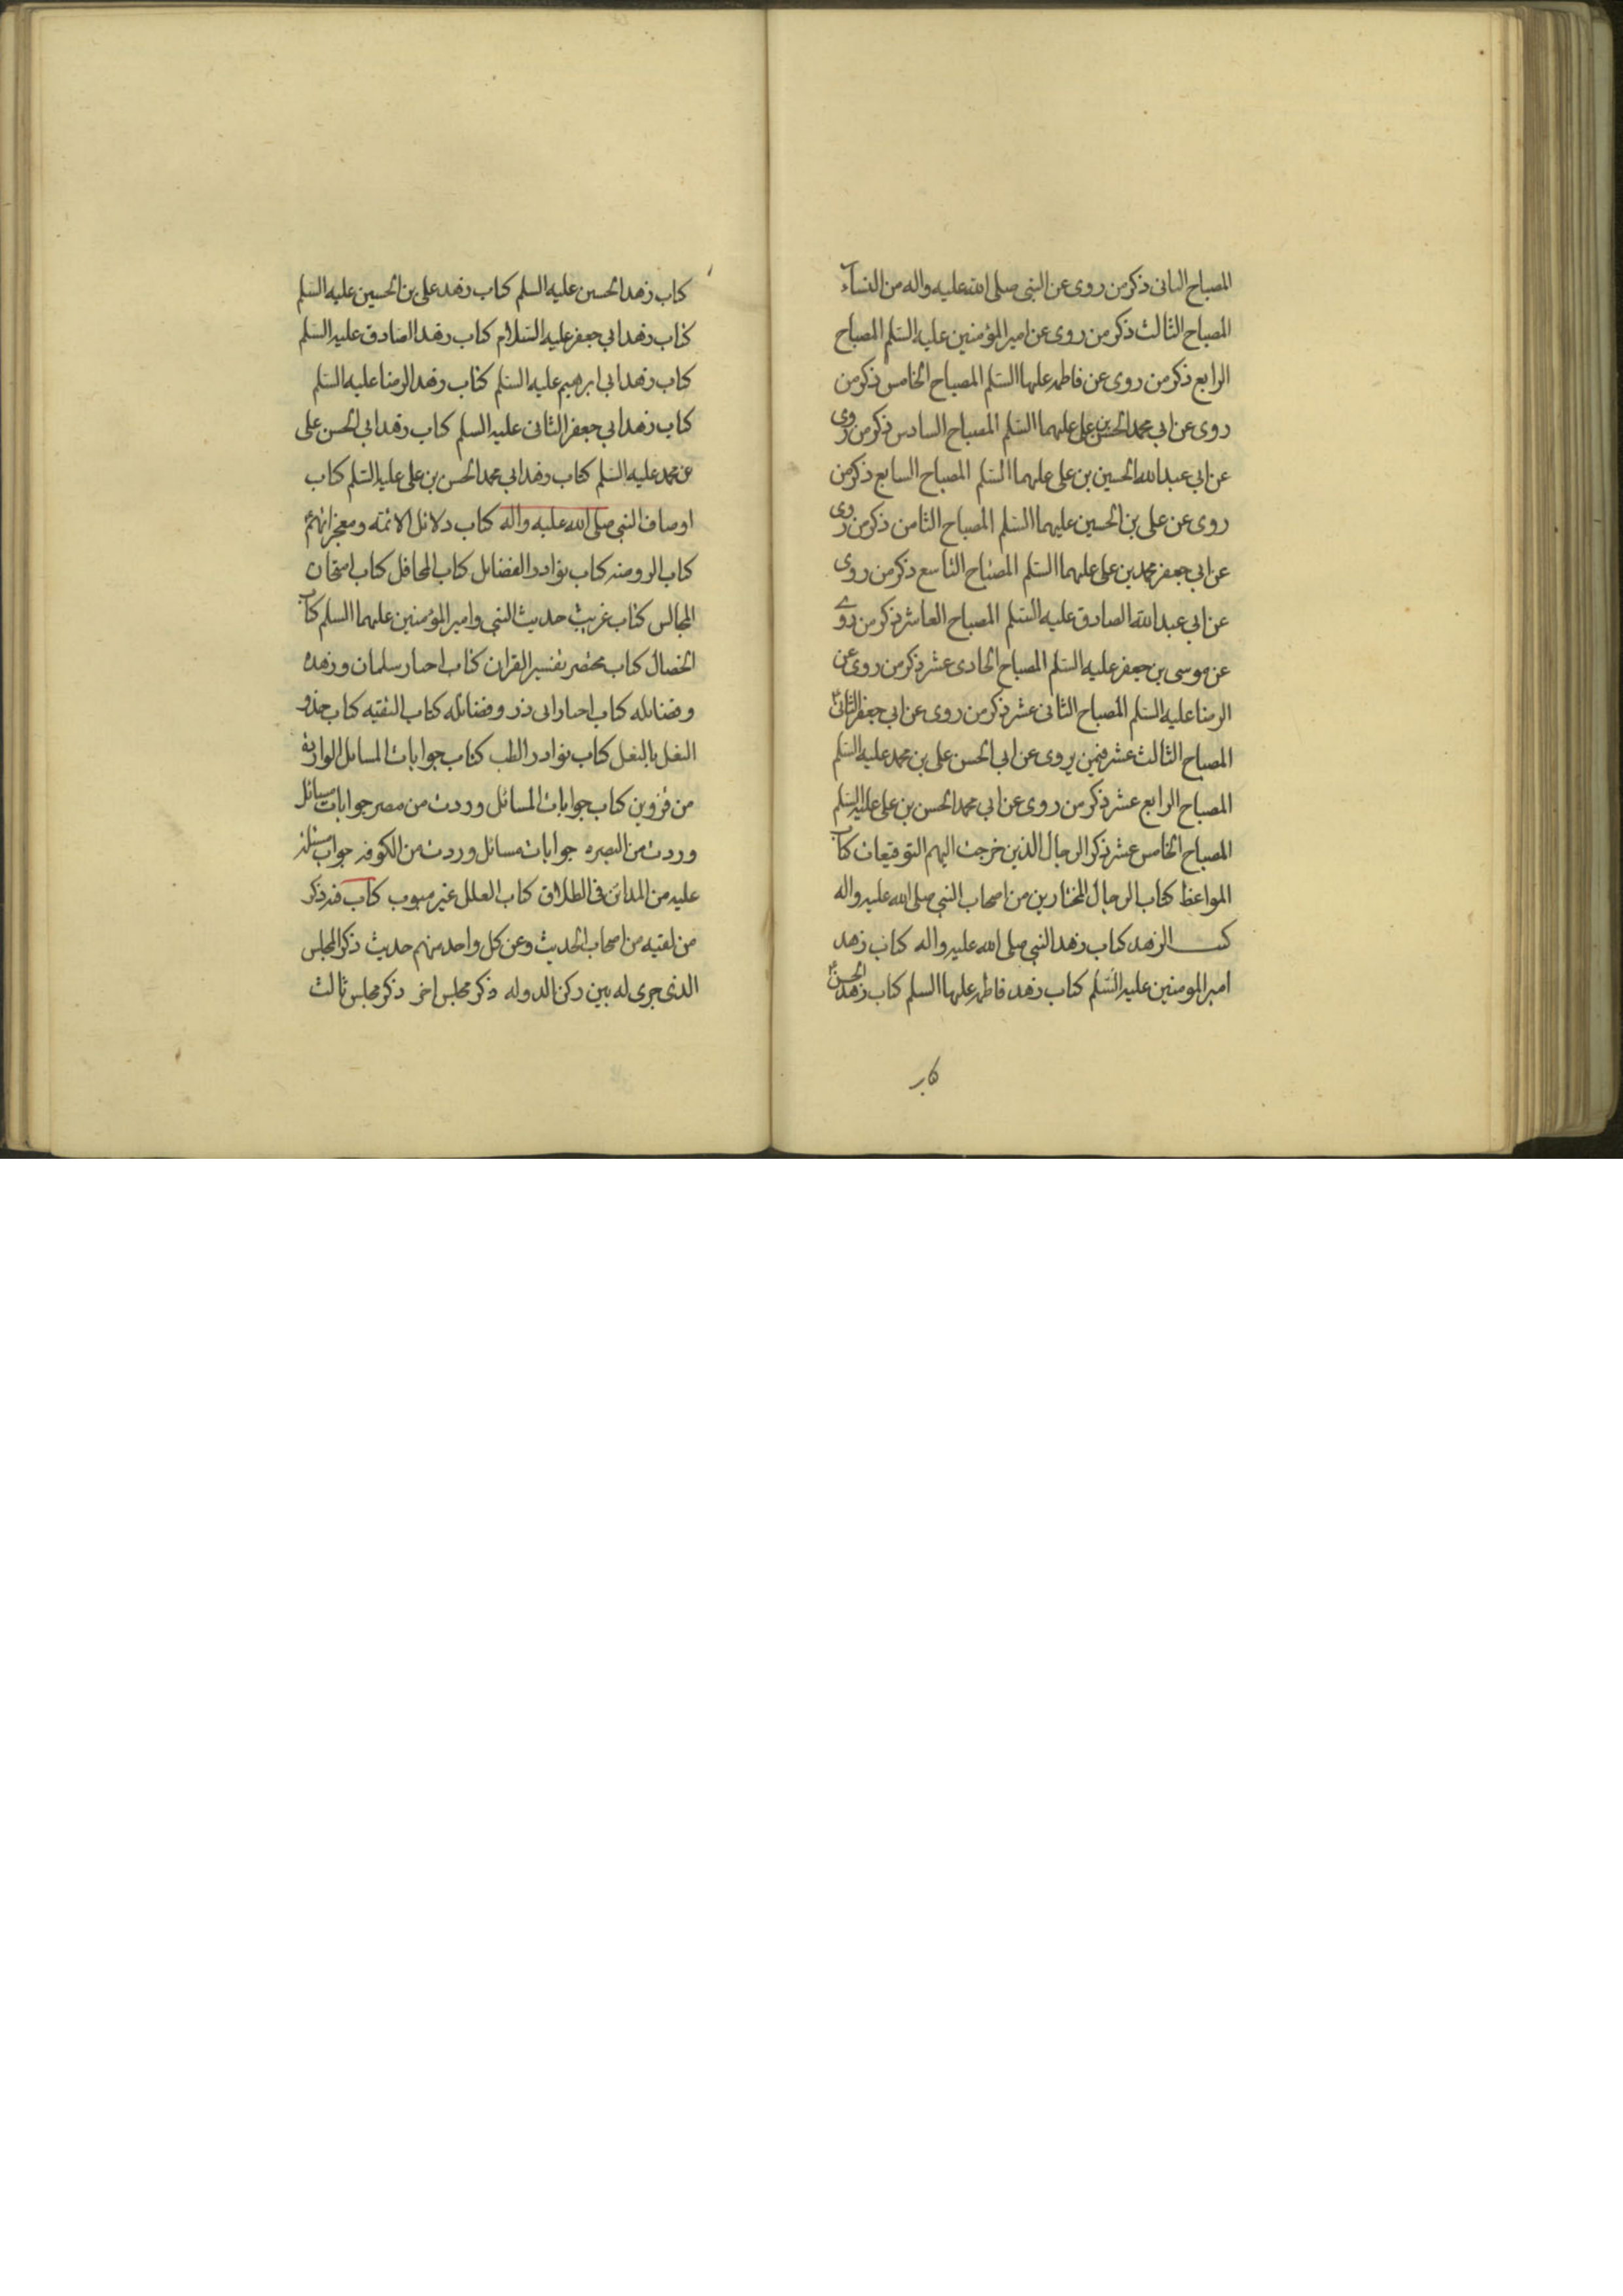 المصباح الثانى ذكر من روى عن النبى صلى الله عليه واله من النساء
المصباح الثالث ذكر من روى عن امير المؤمنين عليه السلم المصباح
الرابع ذكر من روى عن فاطمه عليها السلم المصباح الخامس ذكر من
روى عن ابي محمد الحسن بن على عليهما السلم المصباح السادس ذكر من روى
عن ابي عبد الله الحسين بن على عليهما السلم المصباح السابع ذكر من
روى عن على بن الحسين عليهما السلم المصباح الثامن ذكر من روى
عن ابي جعفر محمد بن على عليهما السلم المصباح التاسع ذكر من روى
عن ابي عبد الله الصادق عليه السلم المصباح العاشر ذكر من روى
عن موسى بن جعفر عليه السلم المصباح الحادى عشر ذكر من روى عن
الرضا عليه السلم المصباح الثانى عشر ذكر من روى عن ابي جعفر الثانى
المصباح الثالث عشر فيمن يروى عن ابى الحسن على بن محمد عليه السلم
المصباح الرابع عشر ذكر من روى عن ابي محمد الحسن بن على عليه السلم
المصباح الخامس عشر ذكر الرجال الذين خرجت اليهم التوقيعات كتاب
المواعظ كتاب الرجال المختارين من اصحاب النبي صلى الله عليه واله
كتب الزهد كتاب زهد النبي صلى الله عليه واله كتاب زهد
امير المومنين عليه السلم كتاب زهد فاطمه عليها السلم كتاب زهد الحسن
كتاب
كتاب زهد الحسين عليه السلم كتاب زهد على بن الحسين عليه السلم
كتاب زهد ابي جعفر عليه السلام كتاب زهد الصادق عليه السلم
كتاب زهد ابي ابرهيم عليه السلم كتاب زهد الرضا عليه السلم
كتاب زهد ابي جعفر الثانى عليه السلم كتاب زهد ابي الحسن على
بن محمد عليه السلم كتاب زهد ابي محمد الحسن بن على عليه السلم كتاب
اوصاف النبي صلى الله عليه واله كتاب دلائل الائمه ومعجزاتهم
كتاب الروضه كتاب نوادر الفضائل كتاب المحافل كتاب امتحان
المجالس كتاب غريب حديث النبي وامير المؤمنين عليهما السلم كتاب
الخصال كتاب مختصر تفسير القران كتاب اخبار سلمان وزهده
وفضائله كتاب اخبار ابى ذر وفضائله كتاب التقيه كتاب حذو
النعل بالنعل كتاب نوادر الطب كتاب جوابات المسائل الوارده
من قزوين كتاب جوابات المسائل وردت من مصر جوابات مسائل
وردت من البصره جوابات مسائل وردت من الكوفه جواب مسئلة
عليه من المدائن فى الطلاق كتاب العلل غير مبوب كتاب فيه ذكر
من لقيه من اصحاب الحديث وعن كل واحد منهم حديث ذكر المجلس
الذى جرى له بين ركن الدوله ذكر مجلس اخر ذكر مجلس ثالث